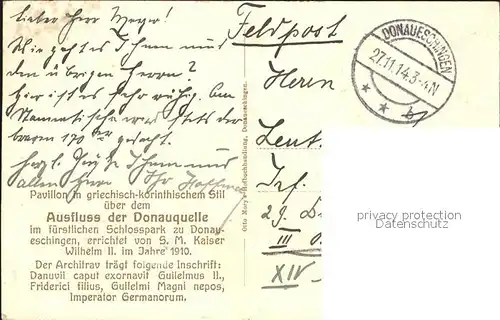 Lieber Herr Meyer!
Wie geht es Ihnen und
den übrigen Herren?
hier ist es sehr ruhig. Am
Stammtische wird stets der
braven 170er gedacht.
Herzl. Grüße Ihnen und
allen Herren Ihr Hoffmann
Pavillon in griechisch-korinthischem Stil
über dem
Ausfluss der Donauquelle
im fürstlichen Schlosspark zu Donau-
eschingen, errichtet von S. M. Kaiser
Wilhelm II. im Jahre 1910.
Der Architrav trägt folgende Inschrift:
Danuvii caput exornavit Guilelmus II.,
Friderici filius, Guilelmi Magni nepos,
Imperator Germanorum.
Otto Mory's Hofbuchhandlung, Donaueschingen.
Feldpost
DONAUESCHINGEN
27.11.14.3-4N
Herrn
Leut.
Inf.
29.
III
XIV
privacy protection
watermark